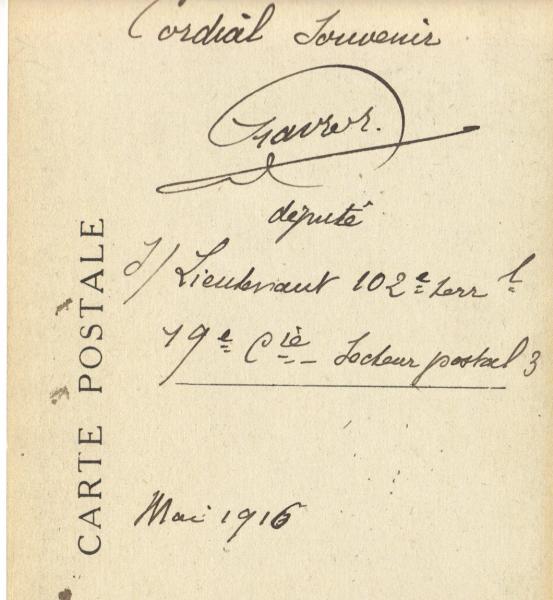 Cordial Souvenir
député
S/ Lieutenant 102e terr l
19e Cie Secteur postal 3
Mai 1916
CARTE POSTALE